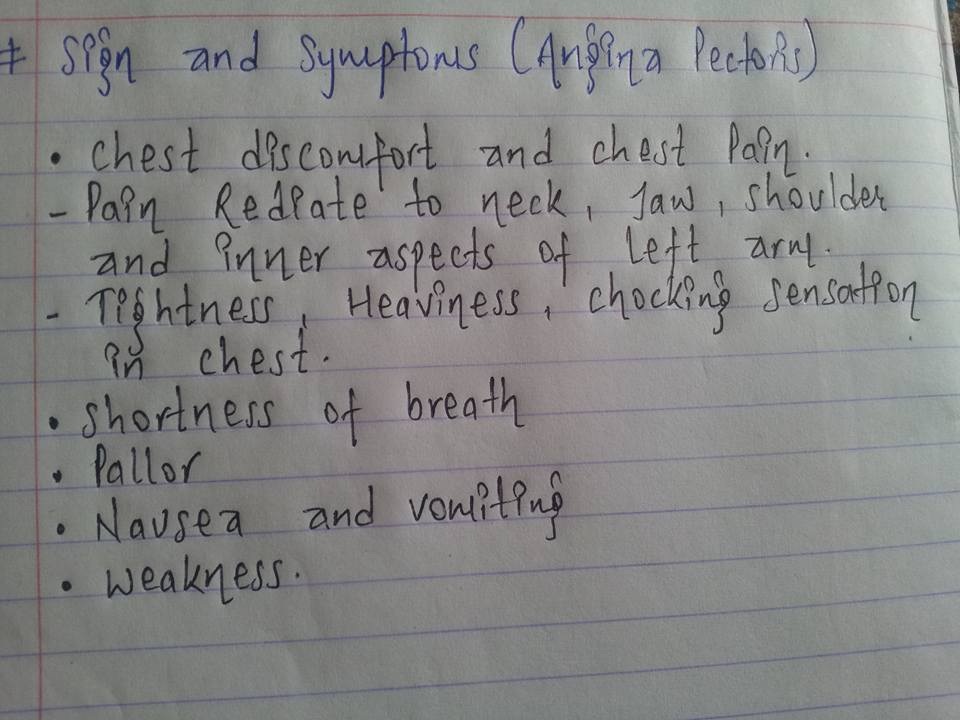 # Sign and Symptoms (Angina Pectoris)
• Chest discomfort and chest Pain.
- Pain Rediate to neck, Jaw, shoulder
and inner aspects of left arm.
- Tightness, Heaviness, chocking sensation
in chest.
• shortness of breath
• Pallor
• Nausea and vomiting
• weakness.